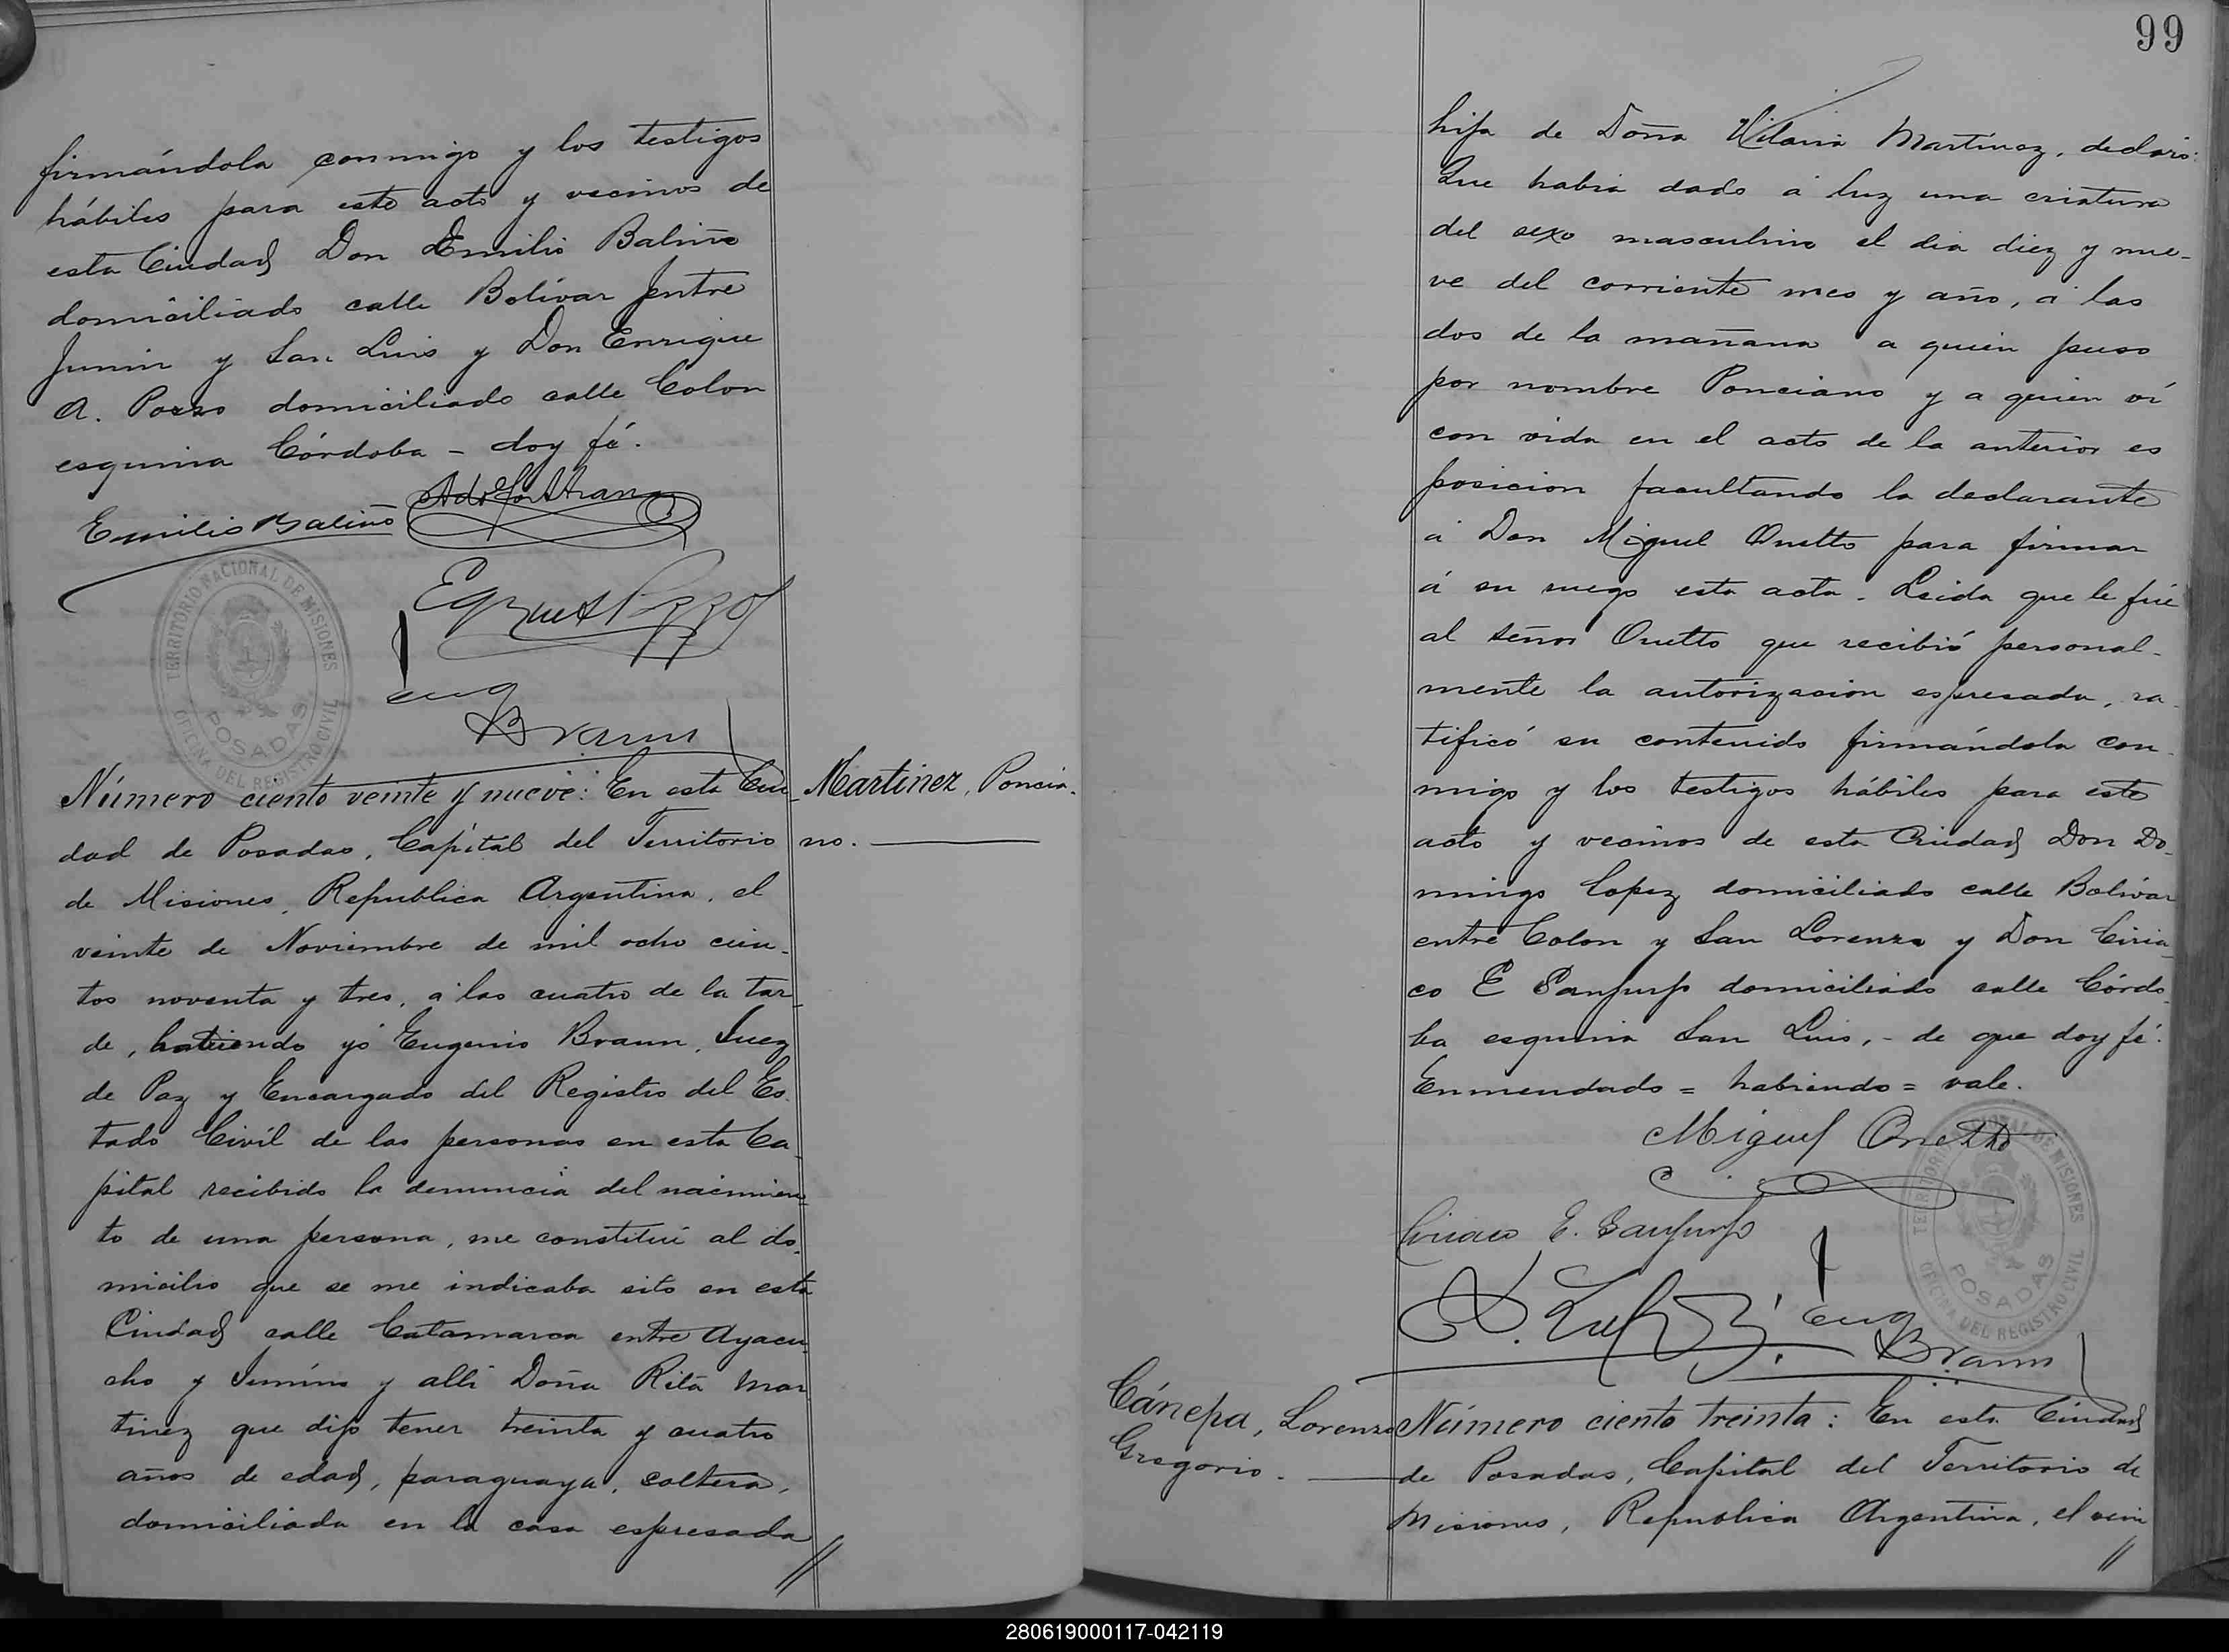 firmándola conmigo y los testigos
hábiles para este acto y vecinos de
esta Ciudad Don Emilio Baliño
domiciliado calle Bolívar entre
Junin y San Luis y Don Enrique
A. Pozzo domiciliado calle Colon
esquina Córdoba - doy fé.
Emilio Baliño
TERRITORIO NACIONAL DE MISIONES
POSADAS
OFICINA DEL REGISTRO CIVIL
Eug
Braun
Número ciento veinte y nueve: En esta Ciu-
dad de Posadas, Capital del Territorio
de Misiones, Republica Argentina, el
veinte de Noviembre de mil ocho cien-
tos noventa y tres, á las cuatro de la tar-
de, habiendo yó Eugenio Braun, Juez
de Paz y Encargado del Registro del Es-
tado Civíl de las personas en esta Ca-
pital recibido la denuncia del nacimien-
to de una persona, me constituí al do-
micilio que se me indicaba sito en esta
Ciudad calle Catamarca entre Ayacu-
cho y Junín y allí Doña Rita Mar-
tinez que dijo tener treinta y cuatro
años de edad, paraguaya, soltera,
domiciliada en la casa espresada
//
Martinez, Poncia-
no.
99
hija de Doña Hilaria Martínez, declaró:
Que habia dado á luz una criatura
del sexo masculino el dia diez y nue-
ve del corriente mes y año, á las
dos de la mañana a quien puso
por nombre Ponciano y a quien ví
con vida en el acto de la anterior es
posicion facultando la declarante
á Don Miguel Onetto para firmar
á su ruego esta acta. Leida que le fué
al señor Onetto que recibió personal-
mente la autorizacion espresada, ra-
tificó su contenido firmándola con-
migo y los testigos hábiles para este
acto y vecinos de esta Ciudad Don Do-
mingo Lopez domiciliado calle Bolívar
entre Colon y San Lorenzo y Don Ciria-
co E Sanjurjo domiciliado calle Córdo-
ba esquina San Luis, - de que doy fé.
Enmendado = habiendo = vale.
Miguel Onetto
TERRITORIO NACIONAL DE MISIONES
POSADAS
OFICINA DEL REGISTRO CIVIL
Ciriaco E. Sanjurjo
Eug
Braun
Cánepa, Lorenzo
Gregorio.
Número ciento treinta: En esta Ciudad
de Posadas, Capital del Territorio de
Misiones, Republica Argentina, el vein
//
280619000117-042119